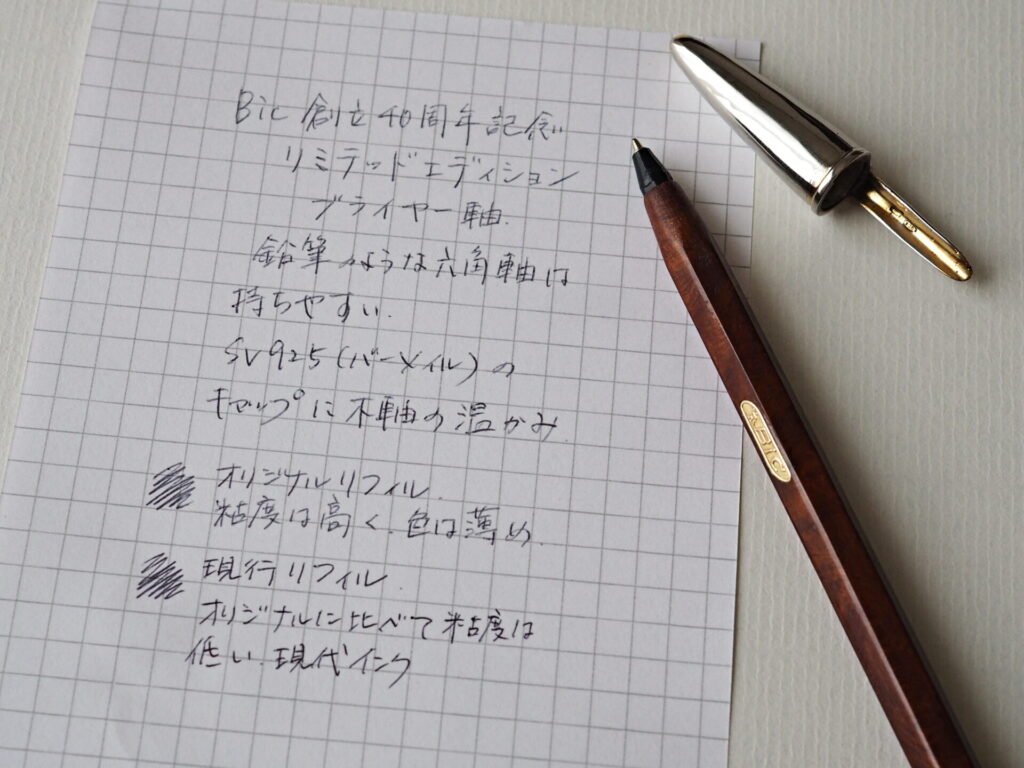 Bic 創立40周年記念
リミテッドエディション
ブライヤー軸.
鉛筆のような六角軸は
持ちやすい.
SV925(バーメイル)の
キャップに木軸の温かみ.
オリジナルリフィル.
粘度は高く.色は薄め.
現行リフィル.
オリジナルに比べて粘度は
低い.現代インク
BIC